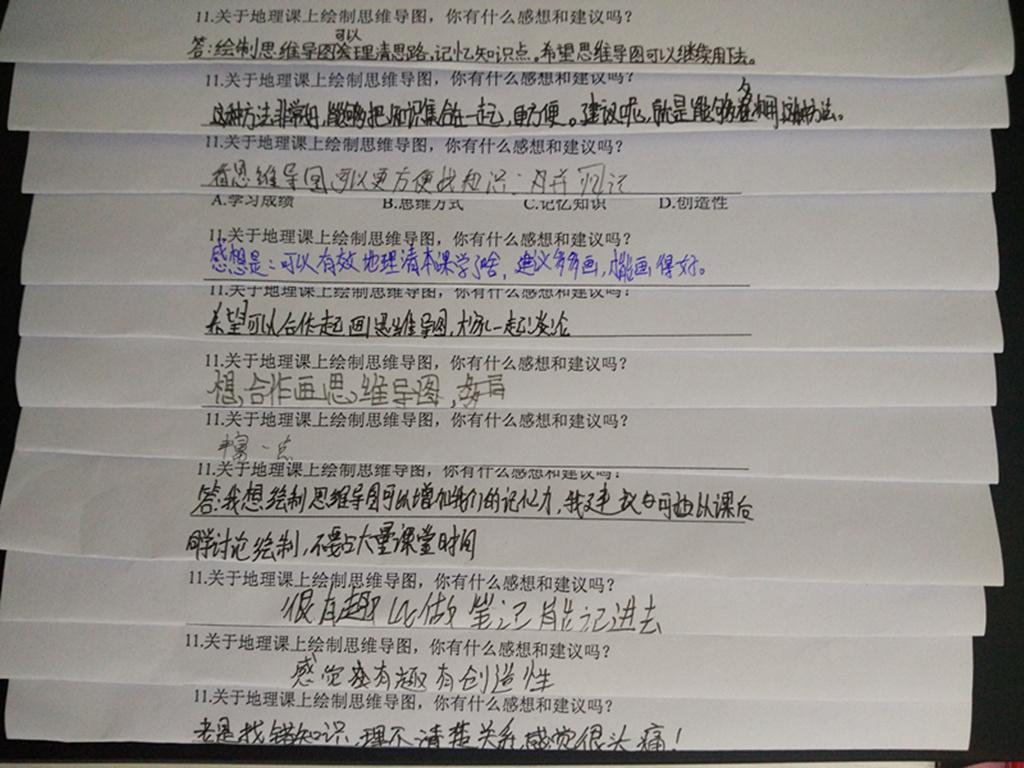 11.关于地理课上绘制思维导图，你有什么感想和建议吗？
可以
答：绘制思维导图会理清思路，记忆知识点。希望思维导图可以继续用下去。
11.关于地理课上绘制思维导图，你有什么感想和建议吗？
这种方法非常好，能够把知识集合在一起，更方便。建议呢，就是能够多利用这种方法。
11.关于地理课上绘制思维导图，你有什么感想和建议吗？
看思维导图可以更方便找知识，并 记
A.学习成绩 B.思维方式 C.记忆知识 D.创造性
11.关于地理课上绘制思维导图，你有什么感想和建议吗？
感想是：可以有效地理清本课学了啥，建议多多画，才能画得好。
11.关于地理课上绘制思维导图，你有什么感想和建议吗？
希望可以合作起画思维导图，大家一起谈论
11.关于地理课上绘制思维导图，你有什么感想和建议吗？
想合作画思维导图，
11.关于地理课上绘制思维导图，你有什么感想和建议吗？
丰富一点
11.关于地理课上绘制思维导图，你有什么感想和建议吗？
答：我想绘制思维导图可以增加我们的记忆力，我 建议 可 以课后
同学讨论绘制，不要占大量课堂时间
11.关于地理课上绘制思维导图，你有什么感想和建议吗？
很有趣 比做笔记能记进去
11.关于地理课上绘制思维导图，你有什么感想和建议吗？
感觉 有趣有创造性
11.关于地理课上绘制思维导图，你有什么感想和建议吗？
老是找错知识，理不清楚关系，感觉很头痛！